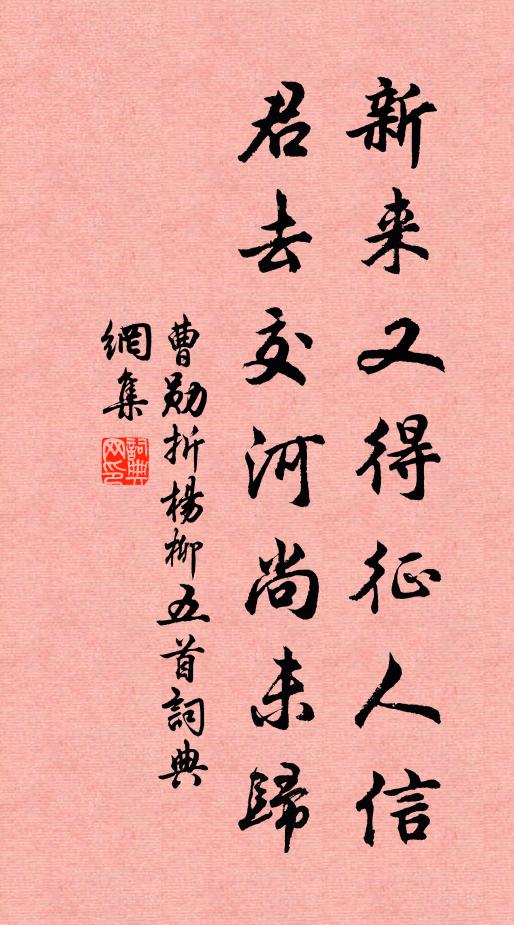 新来又得征人信
君去交河尚未歸
曹勛折楊柳五首詞典
網集
詞典
网印